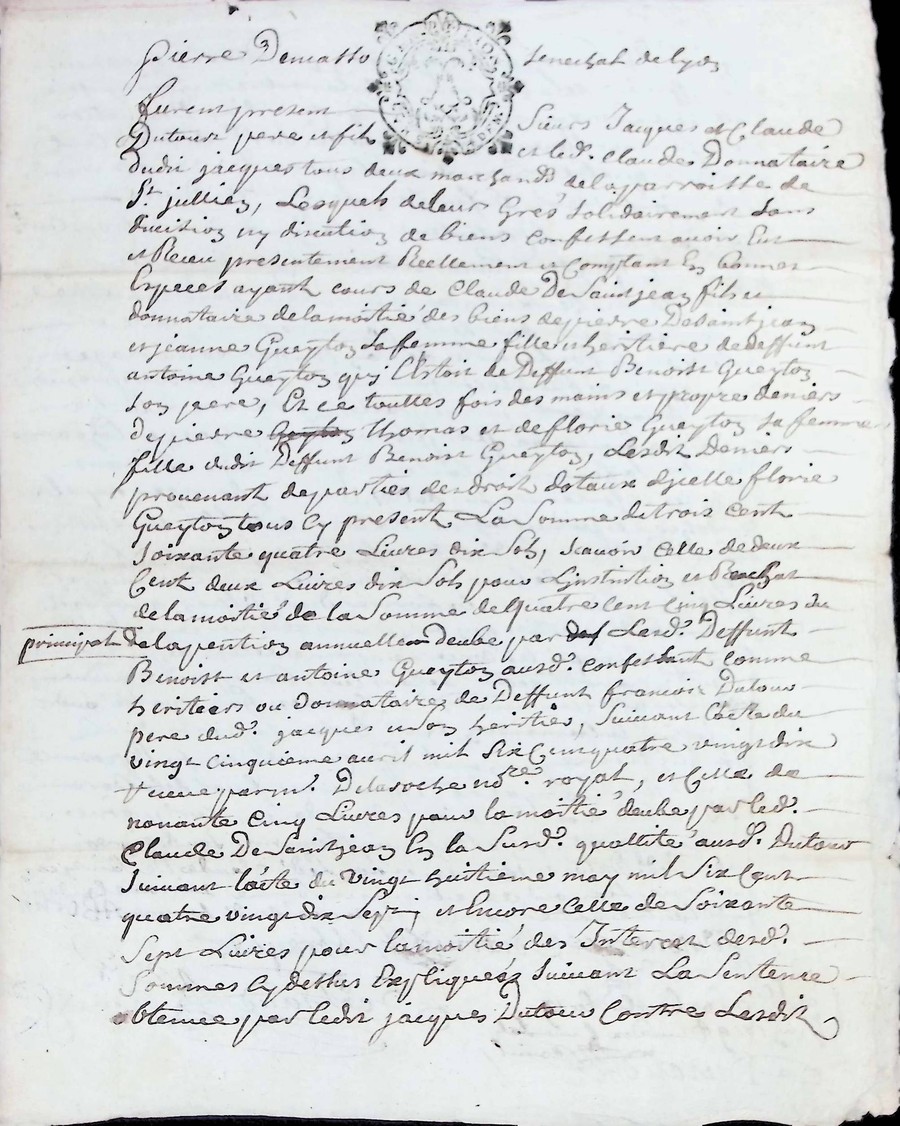 pierre Demasso senechal de lyon
furent present Sieurs Jacques et Claude
Dutour pere et fils et led. Claude Donnataire
dudit jacques tous deux marchands de la parroisse de
St. jullien, Lesquels de leurs Grés solidairement sans
division ny discution de biens confessent avoir Eut
et Receu presentement Reellement et Comptant En bonnes
Especes ayant cours de Claude De Saint jean fils et
donnataire de la moitié des biens de pierre De Saint jean
et jeanne Gueyton sa femme fille et heritiere de deffunt
antoine Gueyton quj l'Estoit de Deffunt Benoist Gueyton
son pere, Et ce touttes fois des mains et propre deniers
de pierre thomas et de florie Gueyton sa femme
fille dudit Deffunt Benoist Gueyton, Lesdit Deniers
provenant de parties des droit dotaux djcelle florie
Gueyton tous Cy present La Somme de trois Cent
soixante quatre Livres dix Sols, scavoir Celle de deux
Cent deux Livres dix Sols pour L'instintion et Rachat
de la moitié de la Somme de quatre Cent Cinq Livres du
principal de la pention annuelle deube par Lesd. Deffunt
Benoist et antoine Gueyton ausd. confessant comme
heritiers ou donnataires de Deffunt francois Dutour
pere dud. jacques et son heritier, suivant l'acte du
vingt Cinquieme avril mil six Cent quatre vingt dix
receu par m. Delaroche nore. royal, et Celle de
nonante Cinq Livres pour la moitié deube par led.
Claude De Saint jean En la Susd. quallité ausd. Dutour
suivant l'acte du vingt huitieme may mil Six Cent
quatre vingt dix Sept et Encore Celle de Soixante
Sept Livres pour la moitié des Interest desd.
Sommes Cy dessus Expliqueéz suivant La Sentence
obtenue par ledit jacques Dutour Contre Lesdit